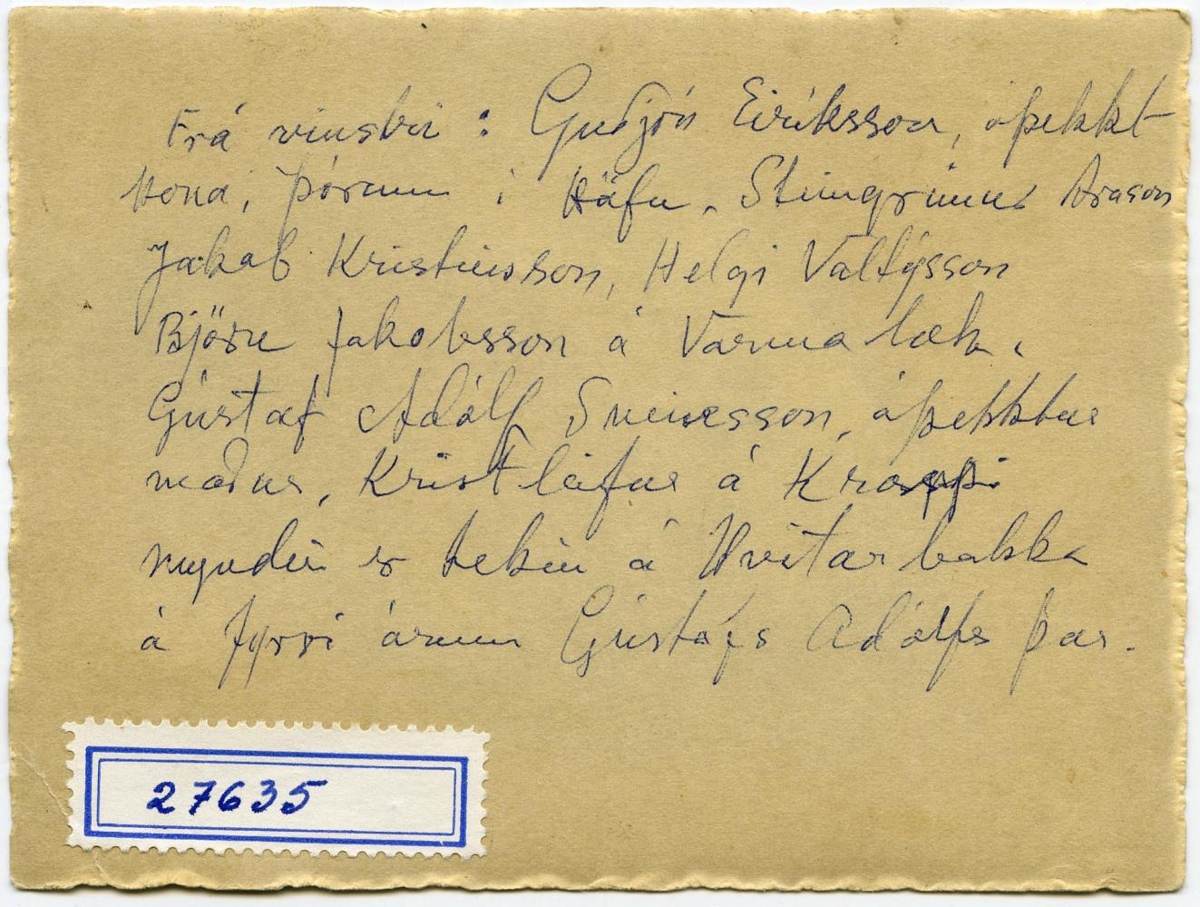 Frá vinstri: Guðjón Eiríksson, óþekkt
kona, Þórunn í Höfn, Steingrímur Arason
Jakob Kristinsson, Helgi Valtýsson
Björn Jakobsson á Varmalæk,
Gústaf Adólf Sveinsson, óþekktur
maður, Kristleifur á Kroppi
myndin er tekin á Hvítárbakka
á fyrri árum Gústafs Adólfs þar.
27635